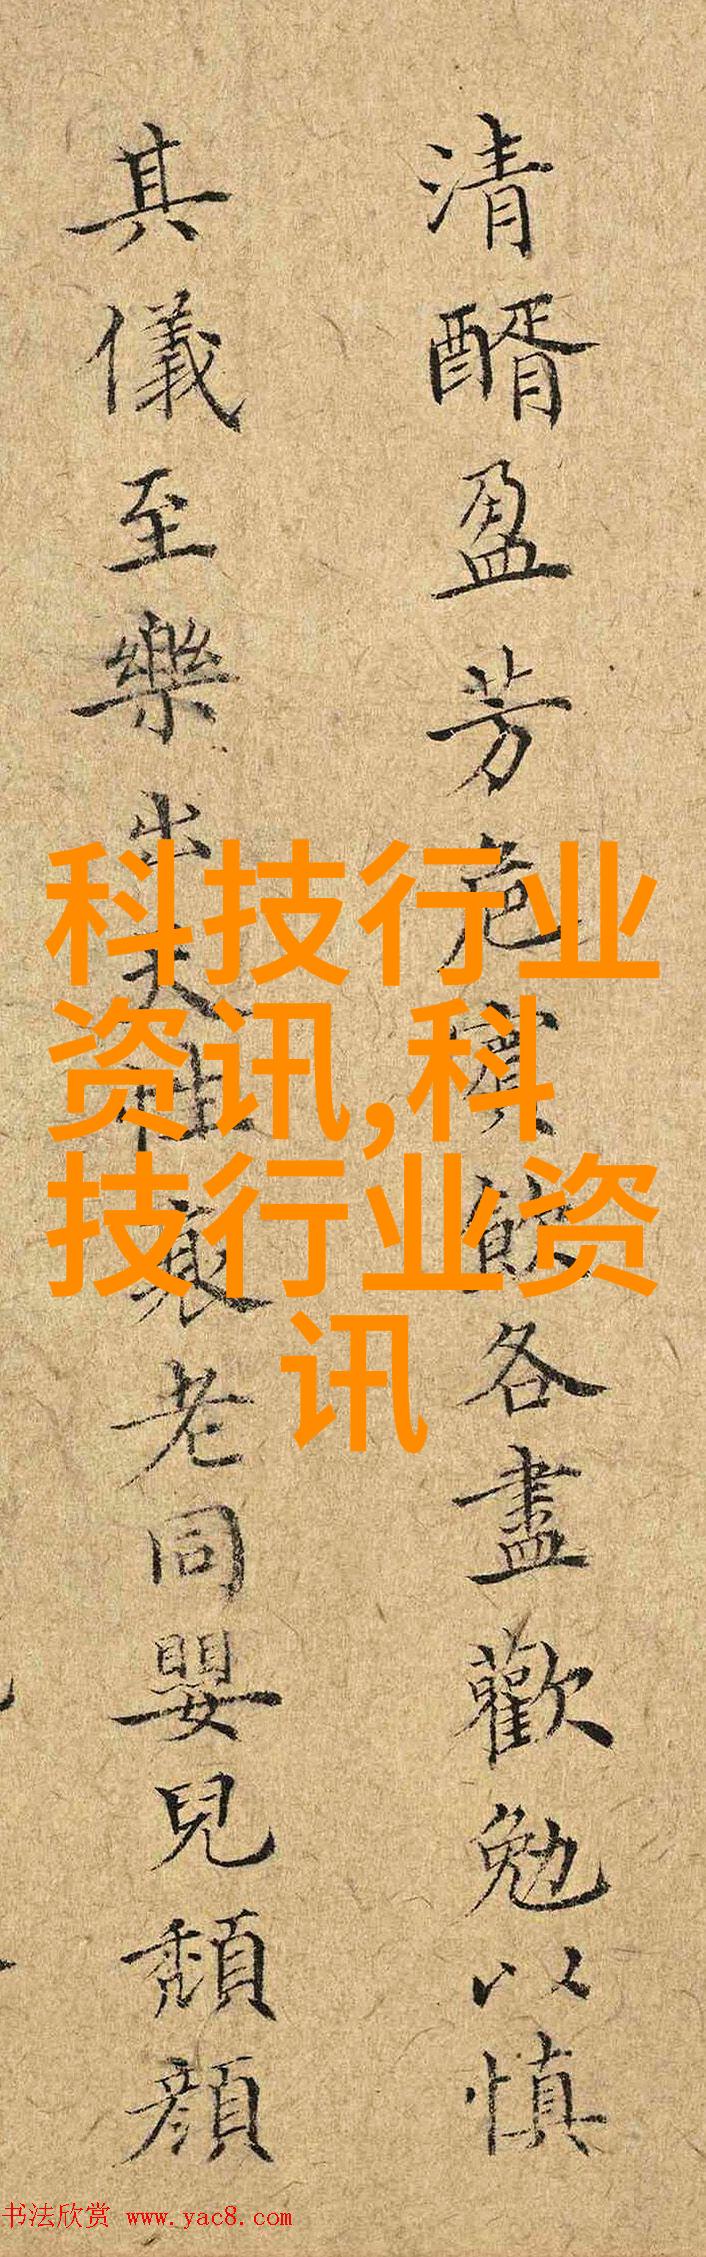 清醑盈芳卮賓飲各盡歡勉以慎
其儀至樂出天性衰老同嬰兒頹顏
科技行业
资讯,科
技行业资
讯
书法欣赏 www.yac8.com